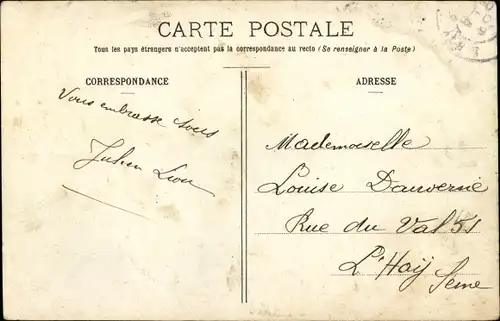 CARTE POSTALE
Tous les pays étrangers n'acceptent pas la correspondance au recto (Se renseigner à la Poste)
CORRESPONDANCE
Vous embrasse tous
Julien
ADRESSE
Mademoiselle
Louise Dauvernie
Rue du Val 51
L'Haÿ
Seine